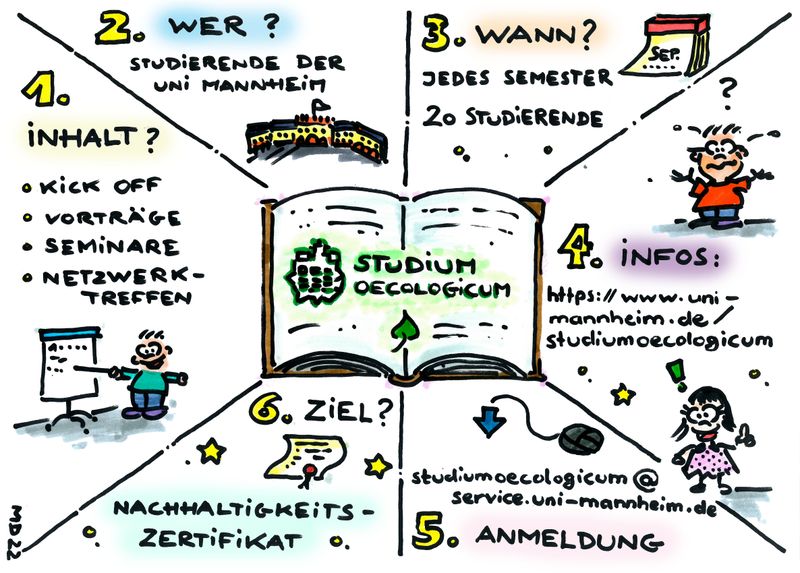 1.
INHALT?
KICK OFF
VORTRÄGE
SEMINARE
NETZWERK-
TREFFEN
2. WER?
STUDIERENDE DER
UNI MANNHEIM
3. WANN?
SEP.
JEDES SEMESTER
20 STUDIERENDE
?
4. INFOS:
https://www.uni-
mannheim.de/
studiumoecologicum
!
STUDIUM
OECOLOGICUM
studiumoecologicum@
service.uni-mannheim.de
5. ANMELDUNG
6. ZIEL?
NACHHALTIGKEITS-
ZERTIFIKAT
MD22